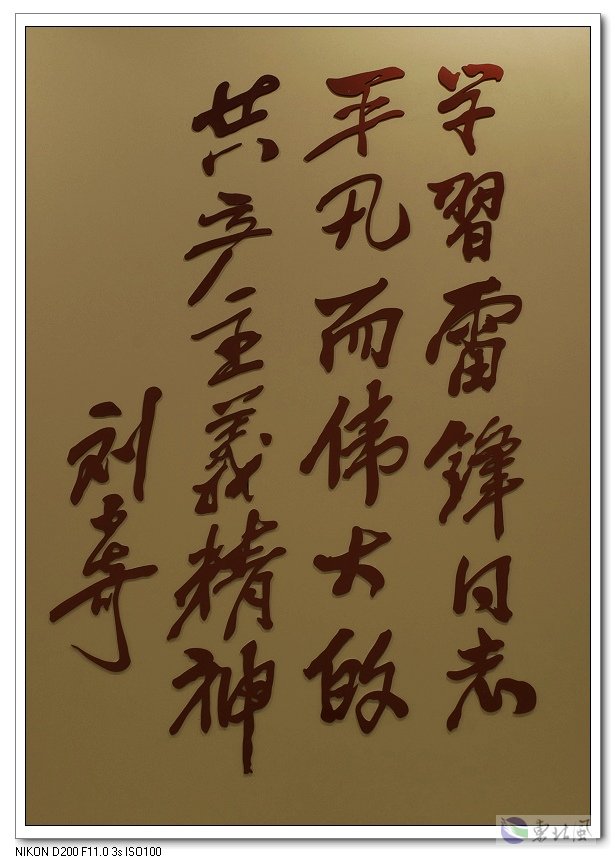 学習雷鋒同志
平凡而伟大的
共产主義精神
刘少奇
東北風
NIKON D200 F11.0 3s ISO100